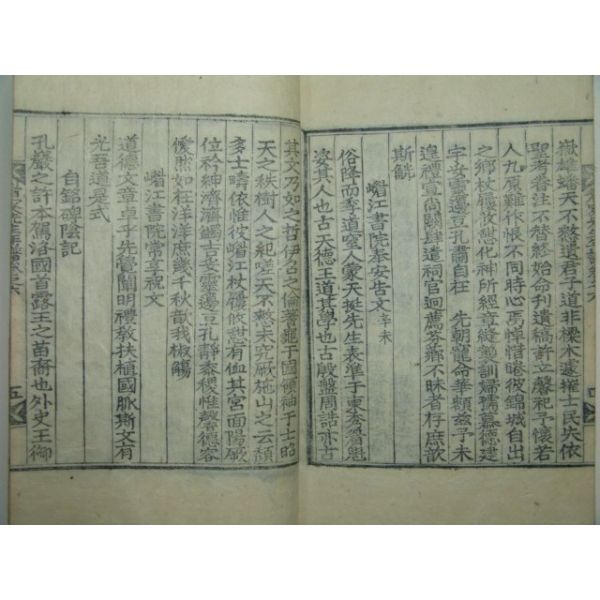 嶽雄蟠天不憗遺君子道非樑木遽摧士民失依
聖考眷注不替終始命刊遺稿許立馨祀予懷若
人九原難作恨不同時心焉悼惜睠彼錦城自出
之鄉杖屨攸憩化神所經章縫絃訓婦孺慕德建
宇妥靈邊豆孔肅自在　先朝寵命華額玆予未
遑禮宣尚闕肆遣祠官迥薦芬薌不昧者存庶歆
斯觥
嵋江書院奉安告文辛未
俗降而季道窒人蒙天挺先生表準于東秀眉皓
婆其人也古天德王道其學也古殷盤周誥亦古
其文乃如之哲伊呂之倫蓍龜于國領袖于士昭
天之秩樹人之紀嗟天不憗未究厥施山之云頹
多士疇依惟彼嵋江杖屨攸憩有侐其宮面陽厥
位衿紳濟濟蠲吉妥靈邊豆孔靜黍稷惟馨德容
僾然如在洋洋庶幾千秋歆我椒觴
嵋江書院常享祝文
道德文章卓乎先覺闡明禮敎扶植國脈斯文有
光吾道是式
自銘碑陰記
孔巖之許本駕洛國首露王之苗裔也外史王御
五
四